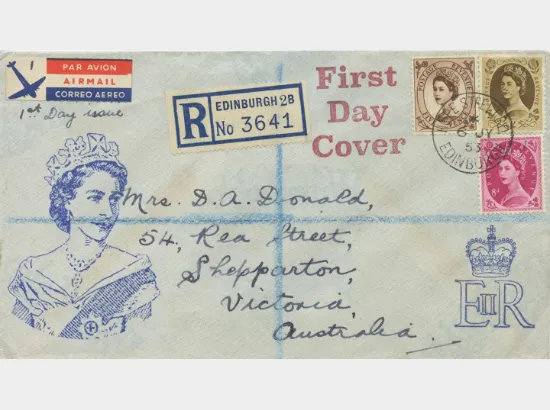 PAR AVION
AIRMAIL
CORREO AEREO
1st Day issue
R EDINBURGH 2B
No 3641
First
Day
Cover
6 JY
53
EDINBURGH
Mrs. D. A. Donald,
54, Rea Street,
Shepparton,
Victoria,
Australia.
EIIR